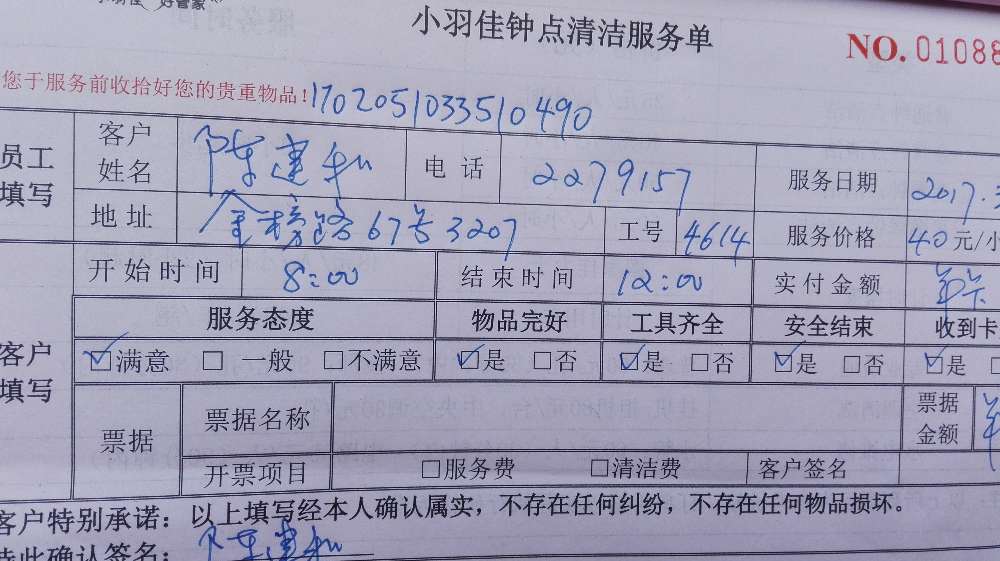 好管家
小羽佳钟点清洁服务单
NO. 01088
您于服务前收拾好您的贵重物品！1702051033510490
员工填写 客户姓名 陈建和 电话 2279157 服务日期 2017.
地址 金榜路67号3207 工号 4614 服务价格 40元/小
客户填写 开始时间 8:00 结束时间 12:00 实付金额 年卡
服务态度 物品完好 工具齐全 安全结束 收到卡
☑满意 □一般 □不满意 ☑是 □否 ☑是 □否 ☑是 □否 ☑是 □
票据 票据名称 票据金额
开票项目 □服务费 □清洁费 客户签名
客户特别承诺：以上填写经本人确认属实，不存在任何纠纷，不存在任何物品损坏。
特此确认签名：陈建和